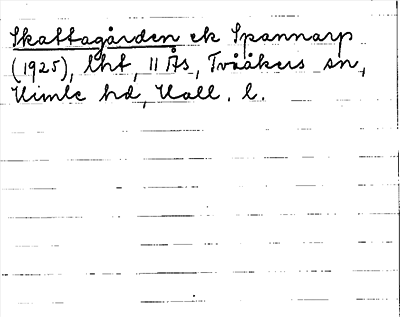 Skattagården ek Spannarp
(1925), lht, 11 Ås, Tvååkers sn,
Himle hd, Hall. l.